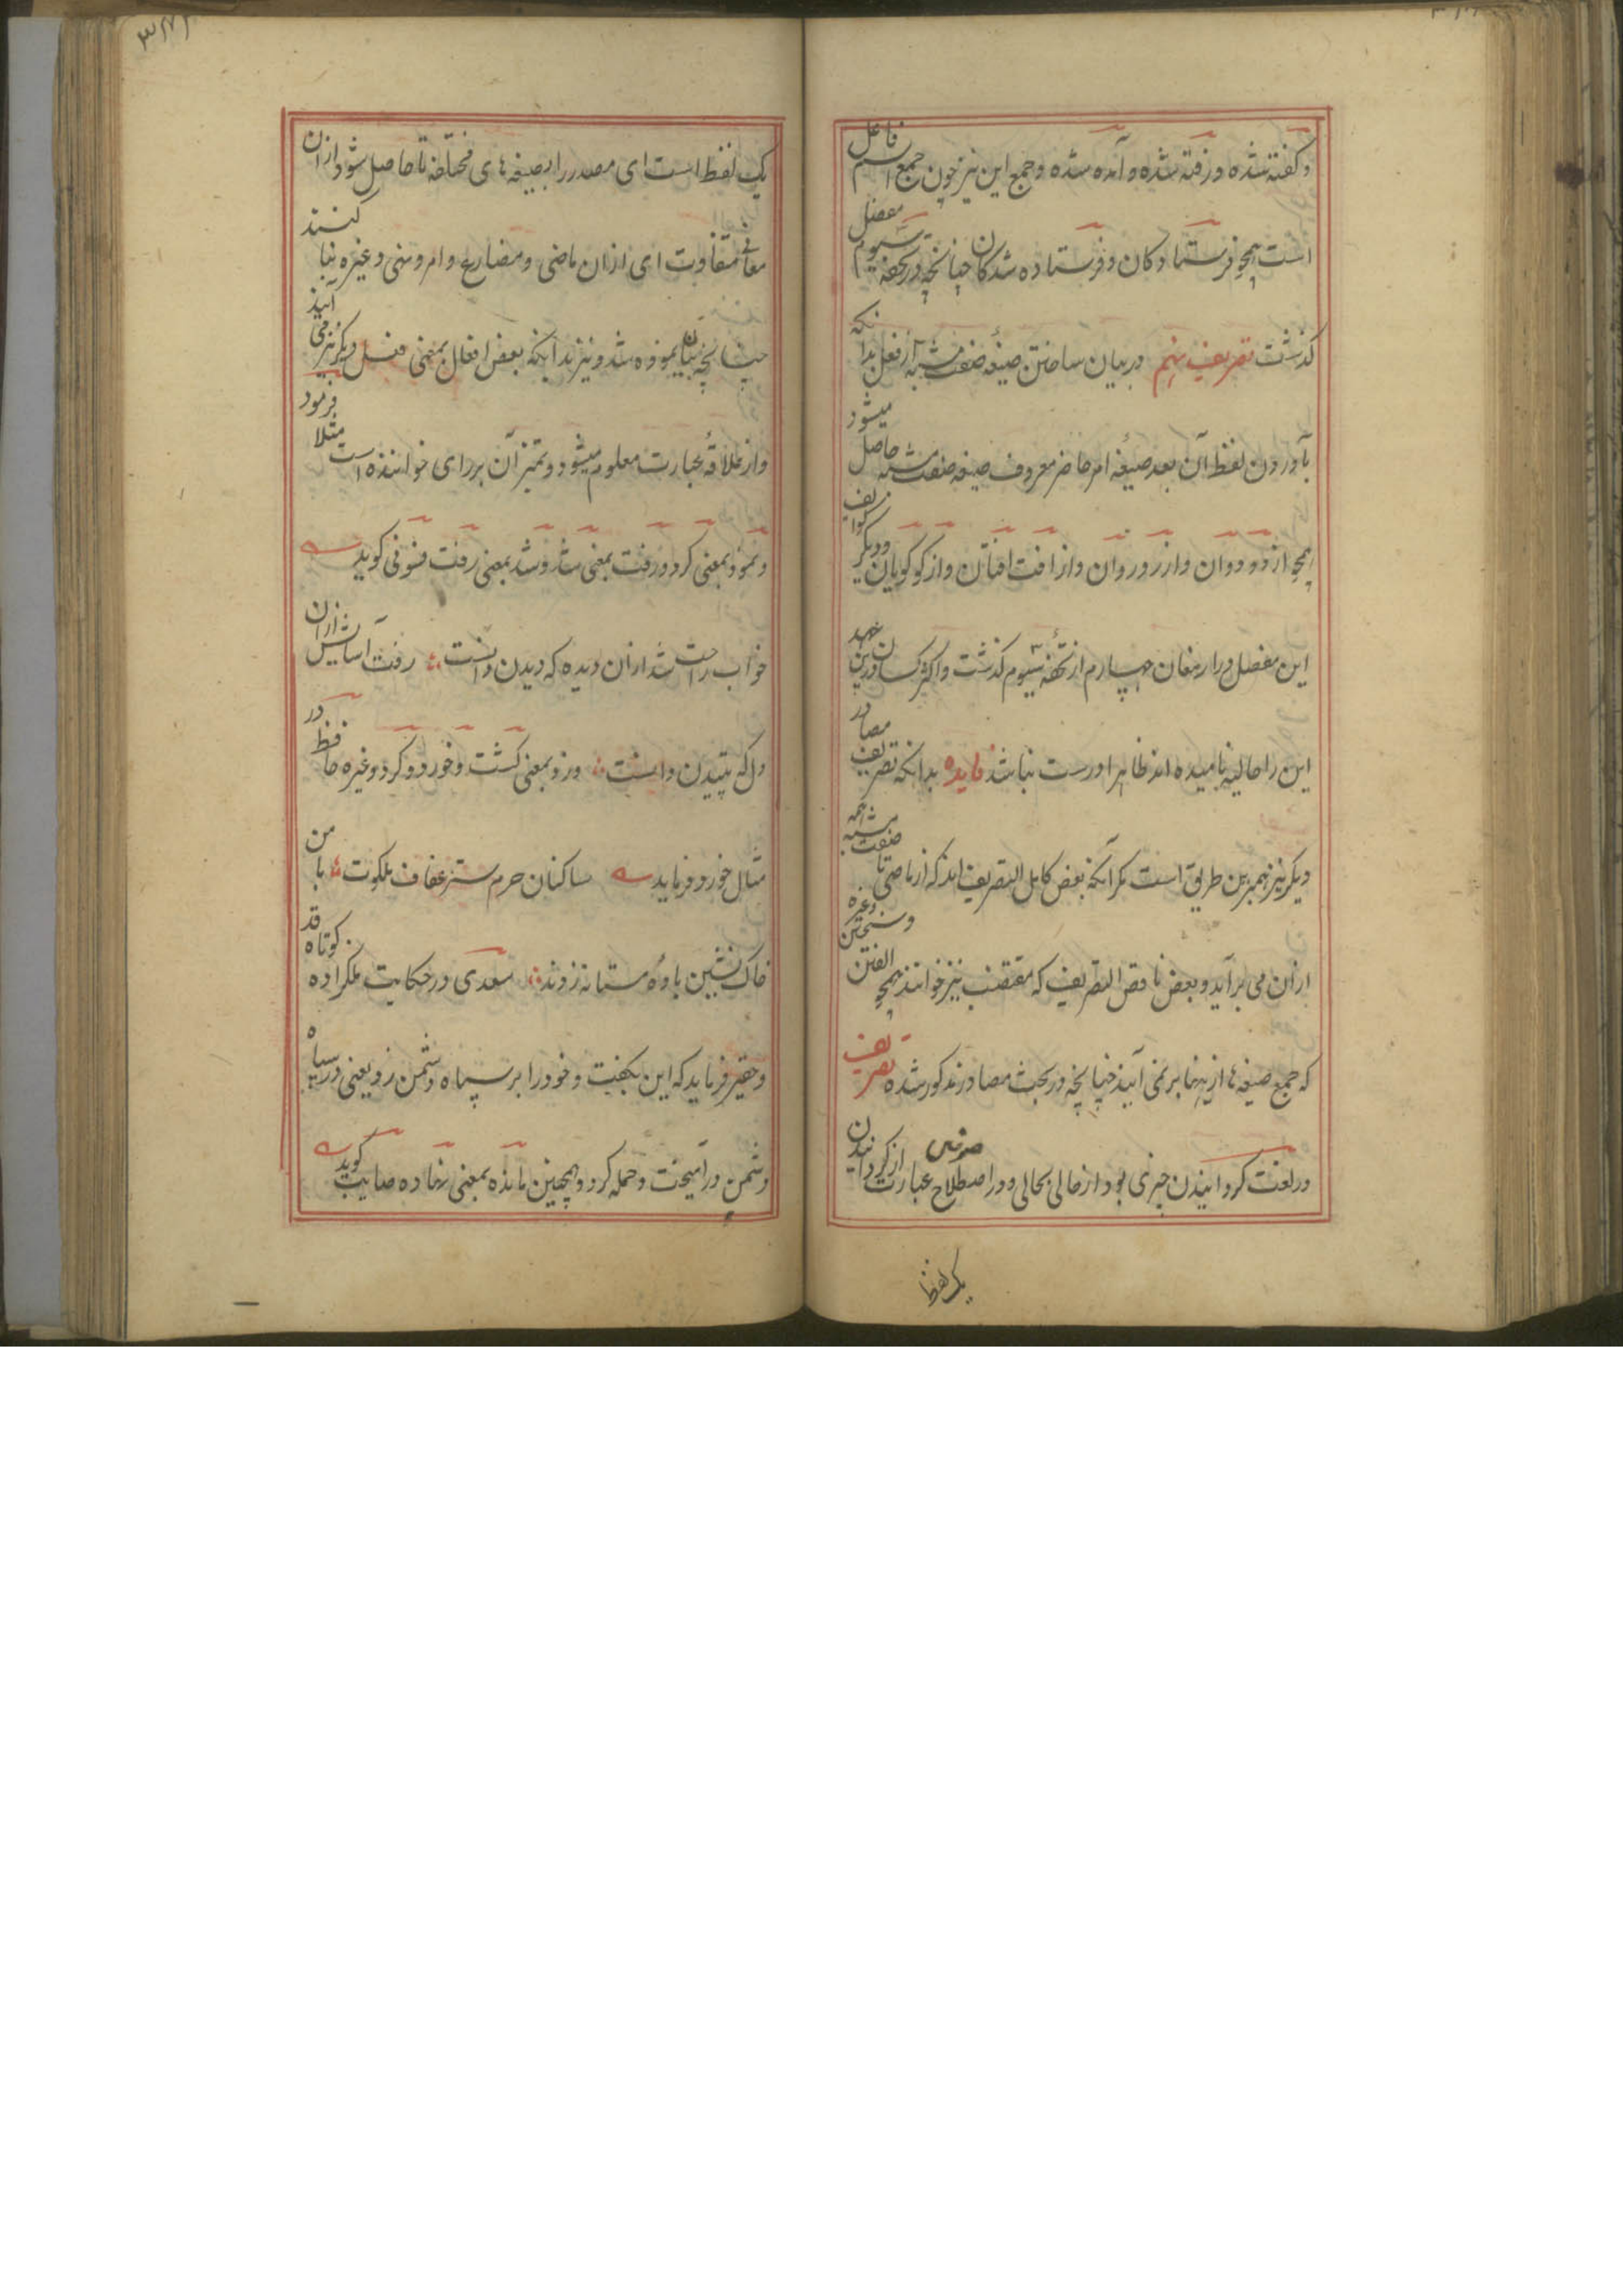 و گفته شده و رفته شده و آمده شده و جمع این نیز چون جمع اسم فاعل
است همچو فرستادگان و فرستاده شدگان چنانچه در تحفه سیوم مفصل
گذشت تصریف نهم در بیان ساختن صیغه صفت مشبه از فعل بدانکه
بآوردن لفظ آن بعد صیغه امر حاضر معروف صیغه صفت مشبه حاصل میشود
همچو از دو دوان و از رو روان و از افت افتان و از گو گویان و دیگر کوایف
این مفصل در ارمغان چهارم از تحفه سیوم گذشت و اکثر کسان درین عهد
این را حالیه نامیده اند ظاهرا درست نباشد فایده بدانکه تصریف مصادر
دیگر نیز همبرین طریق است مگر آنکه بعض کامل التصریف اند که از ماضی تا صفت مشبه همه
ازان می برآید و بعض ناقص التصریف که مقتضب نیز خوانند همچو الفتن و سختن وغیره
که جمع صیغه ها ازینها بر نمی آیند چنانچه در بحث مصادر مذکور شده تصریف
در لغت گردانیدن چیزی بود از حالی بحالی و در اصطلاح صرفی عبارت از گردانیدن
یک لفظ
یک لفظ است ای مصدر را بصیغه های مختلفه تا حاصل شود ازان
معانی متفاوت ای ازان ماضی و مضارع و امر و نهی وغیره بنا کنند
چنانچه بیان نموده شد و نیز بدانکه بعض افعال بمعنی فعل دیگر نیز می آیند
و از علاقه عبارت معلوم میشود و تمیز آن بر رای خواننده است مثلا فرمود
و نمود بمعنی کرد و رفت بمعنی شد و شد بمعنی رفت فسونی گوید
خواب راحت شد ازان دیده که دیدن دانست رفت آسایش ازان
دل که تپیدن دانست و زد بمعنی کشت و خورد و کرد وغیره حافظ در
مثال خورد فرماید ساکنان حرم ستر عفاف ملکوت با من
خاک نشین باده مستانه زدند سعدی در حکایت ملکزاده کوتاه قد
و حقیر فرماید که این بگفت و خود را بر سپاه دشمن زد یعنی در سپاه
دشمن در آمیخت و حمله کرد و همچنین مانده بمعنی نهاده صایب گوید